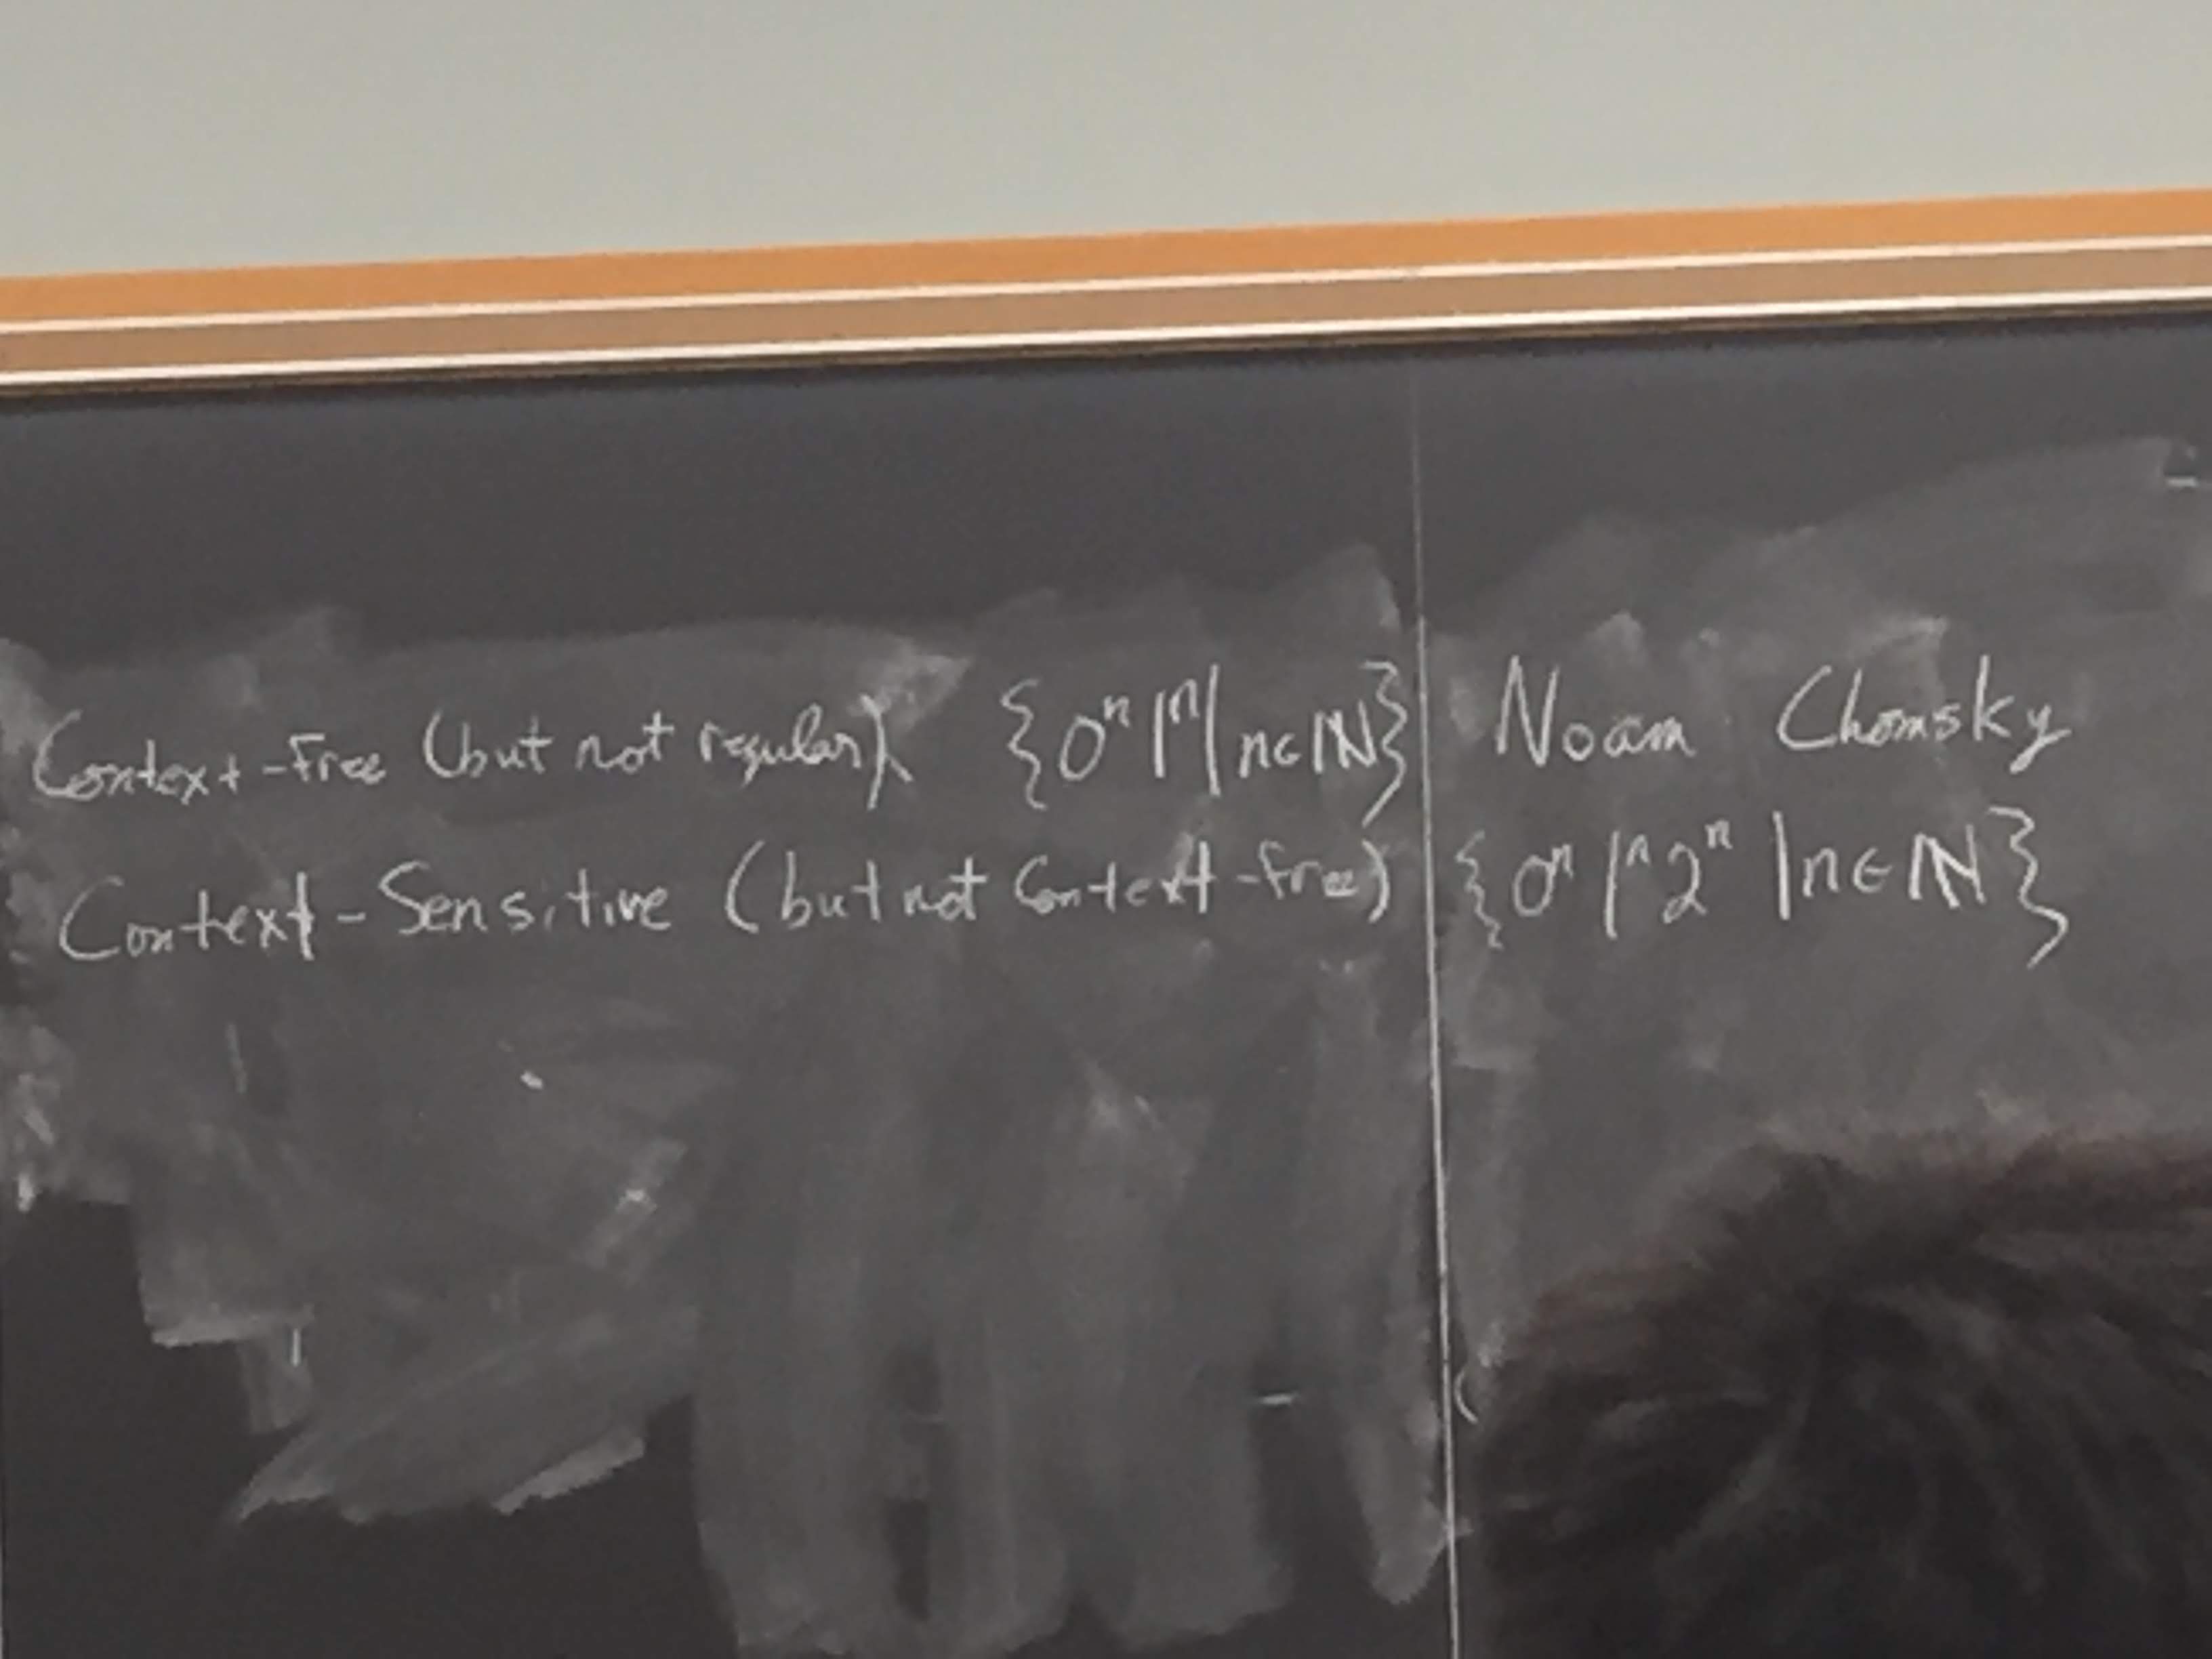 Context-Free (but not regular) {0ⁿ1ⁿ|n∈ℕ} Noam Chomsky
Context-Sensitive (but not Context-Free) {0ⁿ1ⁿ2ⁿ|n∈ℕ}